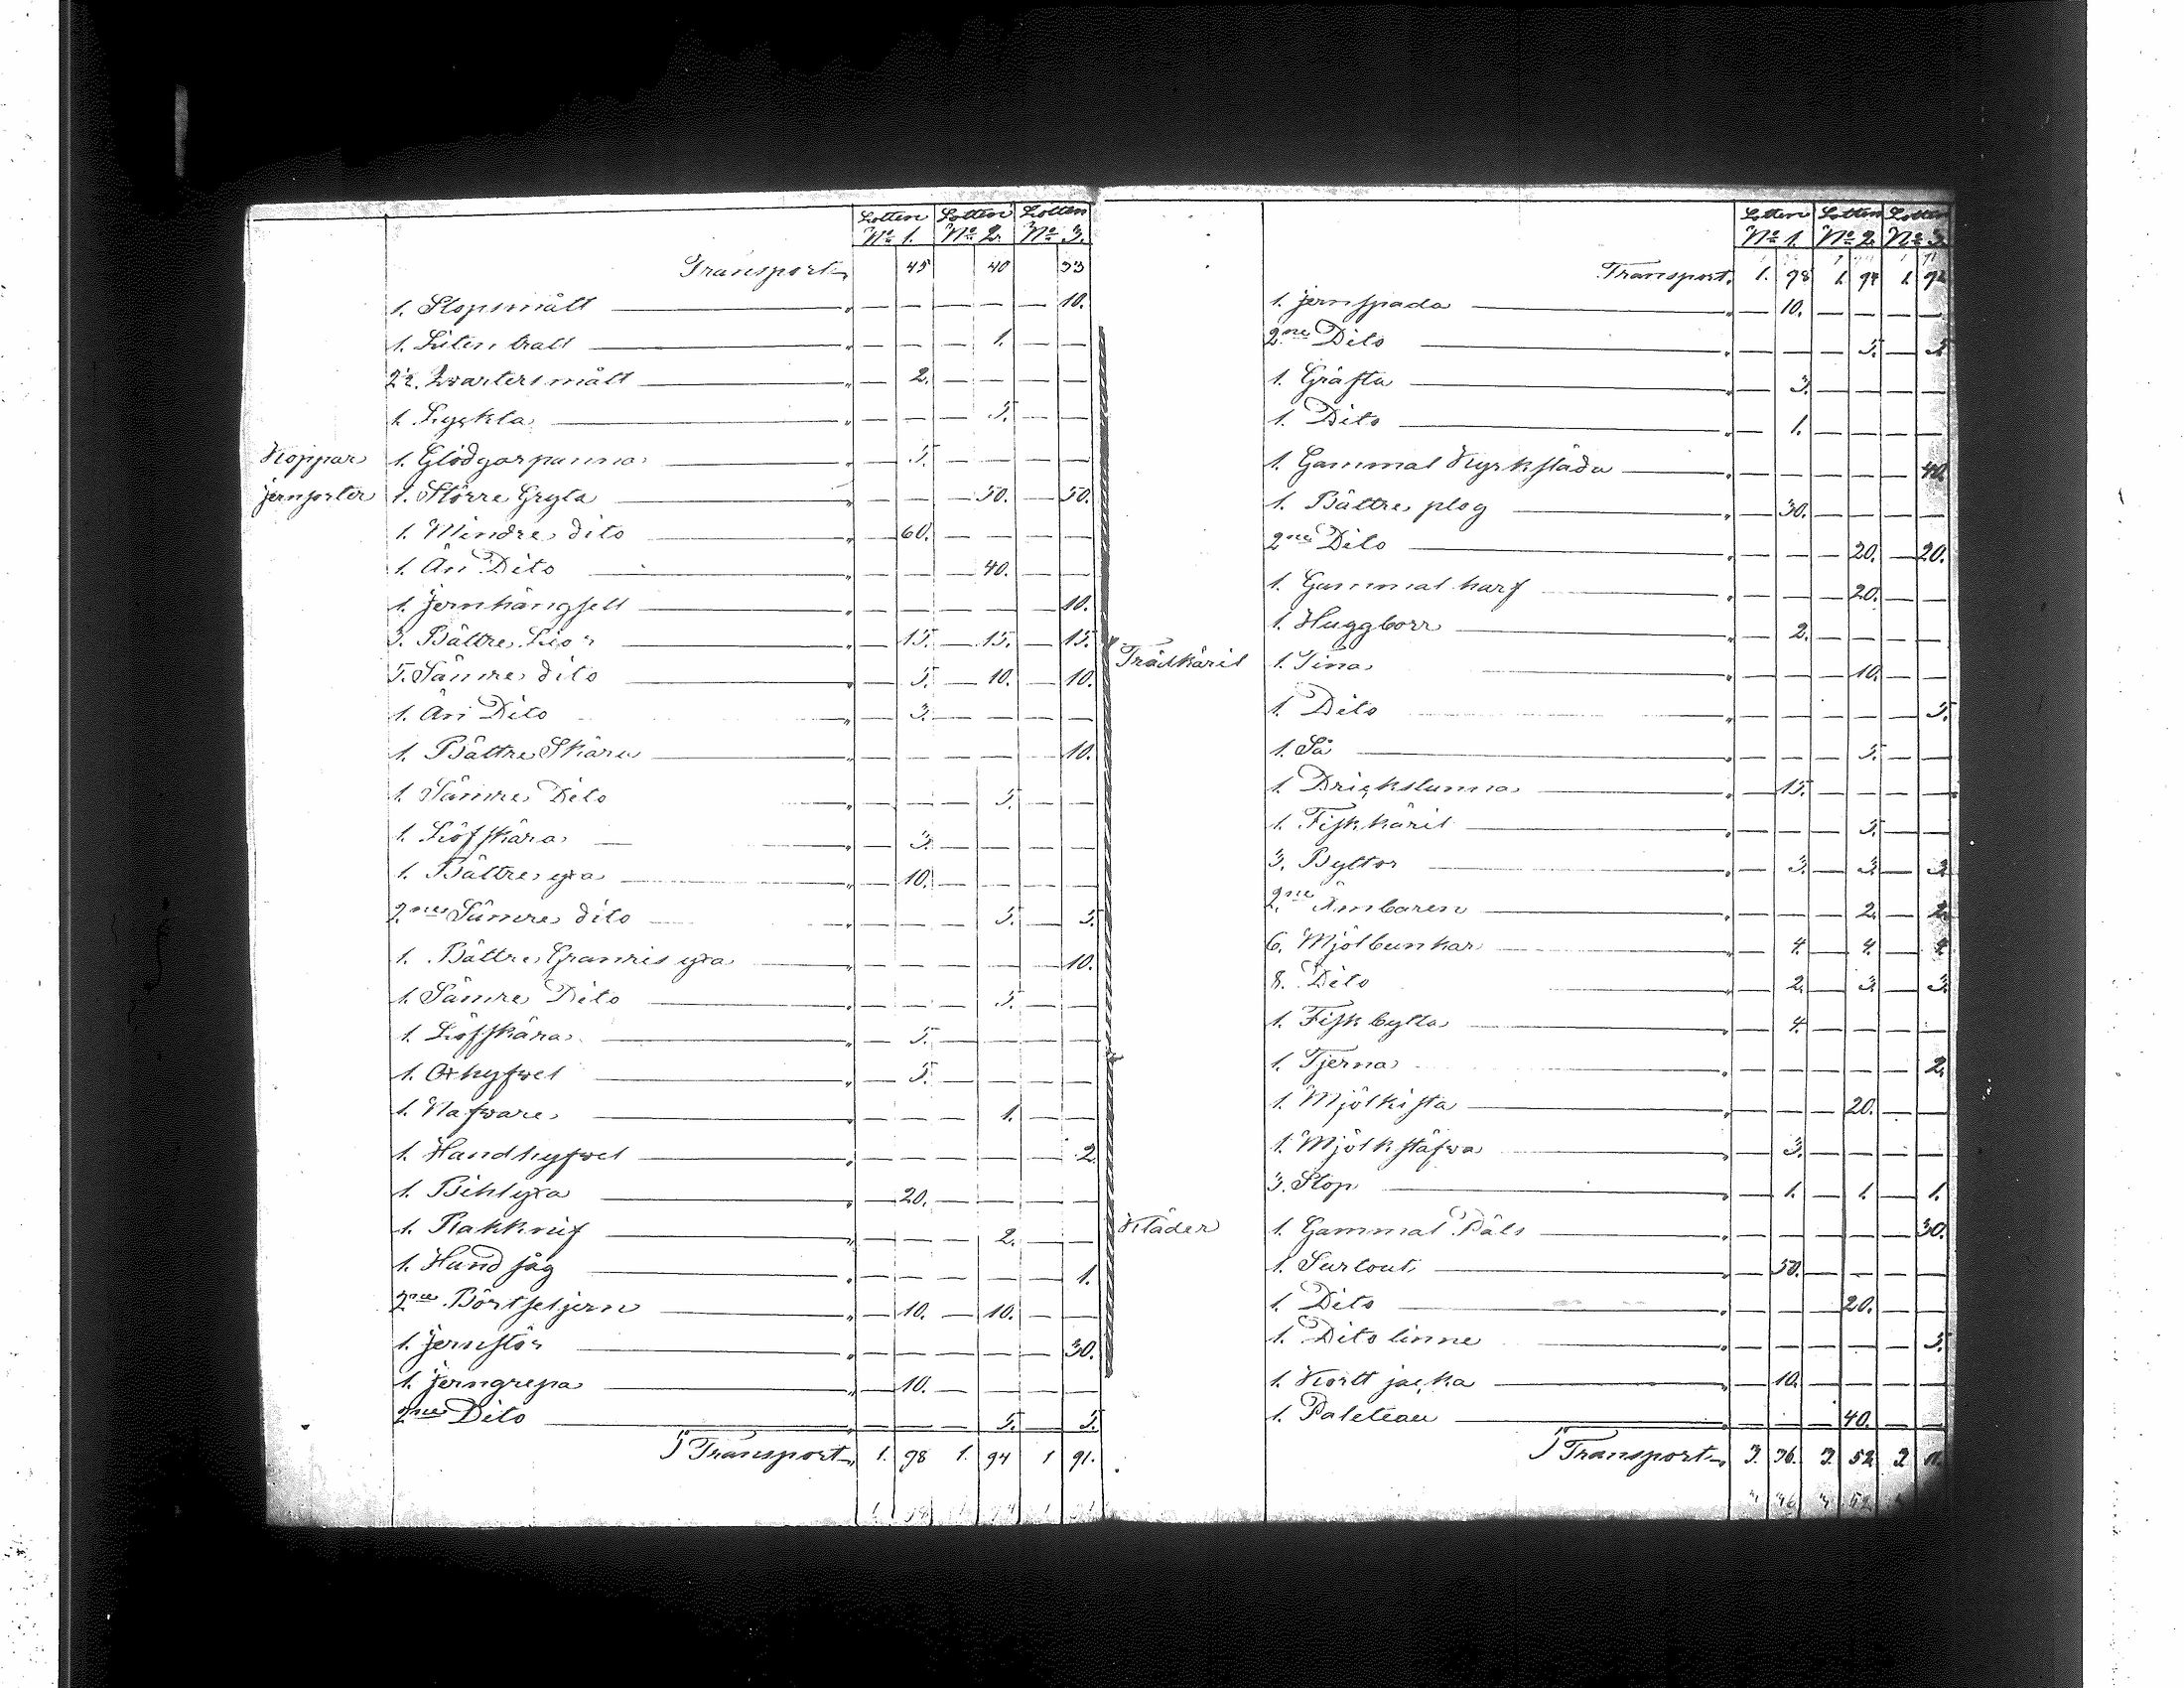 Lotten Lotten Lotten
No 1. No 2. No 3.
Transport 45 40 33
1. Stopsmått — — — — — 10.
1. Liten tratt — — — 1. — —
2:a Qvartersmått — 2. — — — —
1. Lyckta — — — 5. — —
Koppar 1. Glödgarpanna — 5. — — — —
Jernsorter 1. Större Gryta — — — 50. — 50.
1. Mindre dito — 60. — — — —
1. Än Dito — — — 40. — —
1. Jernhängsell — — — — — 10.
3. Bättre Lior — 15. — 15. — 15.
5. Sämre dito — 5. — 10. — 10.
1. Än Dito — 3. — — — —
1. Bättre Skära — — — — — 10.
1. Sämre Dito — — — 5. — —
1. Löfskära — 3. — — — —
1. Bättre yxa — 10. — — — —
2ne Sämre dito — — — 5. — 5.
1. Bättre Granris yxa — — — — — 10.
1. Sämre Dito — — — 5. — —
1. Löfskära — 5. — — — —
1. Oxhyfvel — 5. — — — —
1. Nafvare — — — 1. — —
1. Handhyfvel — — — — — 2
1. Bihlyxa — 20. — — — —
1. Rakknif — — — 2. — —
1. Hand såg — — — — — 1.
2ne Börtseljern — 10. — 10. — —
1. Jernstör — — — — — 30.
1. Jerngrepa — 10. — — — —
2ne Dito — — — 5. — 5.
Transport 1. 98 1. 94 1 91.
Lotten Lotten Lotten
No 1. No 2. No 3.
Transport 1. 98 1. 94 1. 91
1. Jernspada — 10. — — — —
2ne Dito — — — 5. — 5
1. Gräfta — 3. — — — —
1. Dito — 1. — — — —
1. Gammal Kyrksläda — — — — — 40.
1. Bättre plog — 30. — — — —
2ne Dito — — — 20. — 20.
1. Gammal harf — — — 20. — —
1. Huggborr — 2. — — — —
Trädkäril 1. Tina — — — 10. — —
1. Dito — — — — — 5.
1. Så — — — 5. — —
1. Drickstunna — 15. — — — —
1. Fiskkäril — — — 5. — —
3. Byttor — 3. — 3. — 3
2ne Ämbaren — — — 2. — 2.
6. Mjölbunkar — 4. — 4. — 4
8. Dito — 2. — 3. — 3.
1. Fiskbytta — 4. — — — —
1. Tjerna — — — — — 2.
1. Mjölkista — — — 20. — —
1. Mjölkstäfva — 3. — — — —
3. Stop — 1. — 1. — 1.
Kläder 1. Gammal Päls — — — — — 30.
1. Surtout — 50. — — — —
1. Dito — — — 20. — —
1. Dito linne — — — — — 5.
1. Kort jacka — 10. — — — —
1. Paleteau — — — 40. — —
Transport 3. 36. 3. 52